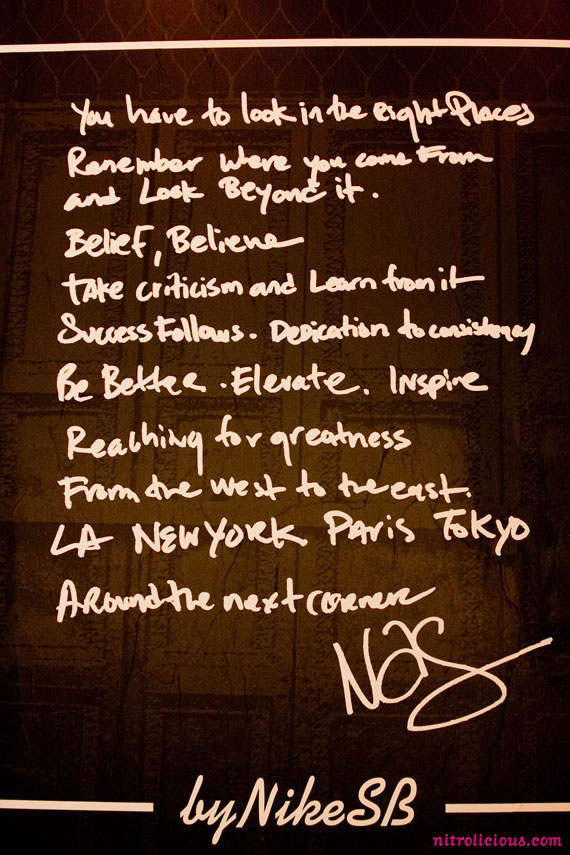 You have to look in the right Places
Remember where you come From
and Look Beyond it.
Belief, Believe
take criticism and Learn from it
Success Follows. Dedication to consistency
Be Better. Elevate. Inspire
Reaching for greatness
From the west to the east.
LA NEW YORK PARIS TOKYO
Around the next corner
NAS
by Nike SB
nitrolicious.com